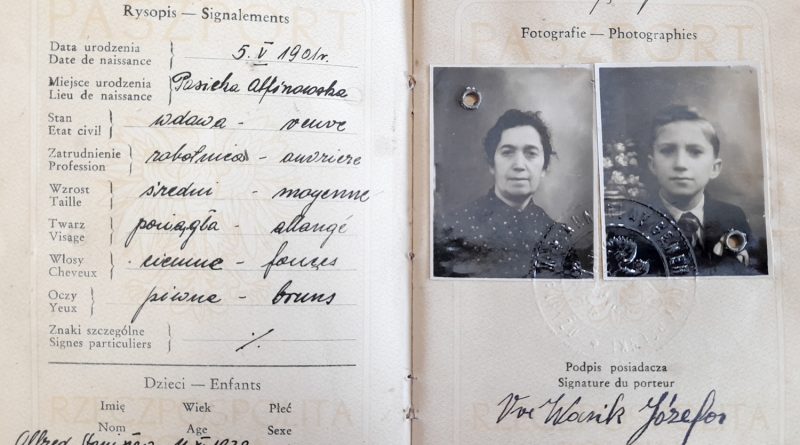 PASZPORT
Rysopis — Signalements
Data urodzenia
Date de naissance
5. V 1901r.
Miejsce urodzenia
Lieu de naissance
Pasieka
Stan
Etat civil
wdowa - veuve
Zatrudnienie
Profession
robotnica - ouvrière
Wzrost
Taille
średni - moyenne
Twarz
Visage
pociągła - allongé
Włosy
Cheveux
ciemne - foncés
Oczy
Yeux
piwne - bruns
Znaki szczególne
Signes particuliers
·/.
Dzieci — Enfants
Imię Wiek Płeć
Nom Age Sexe
RZECZPOSPOLITA
Alfred
PASZPORT
Fotografie — Photographies
Podpis posiadacza
Signature du porteur
Vve Wasik Józefa